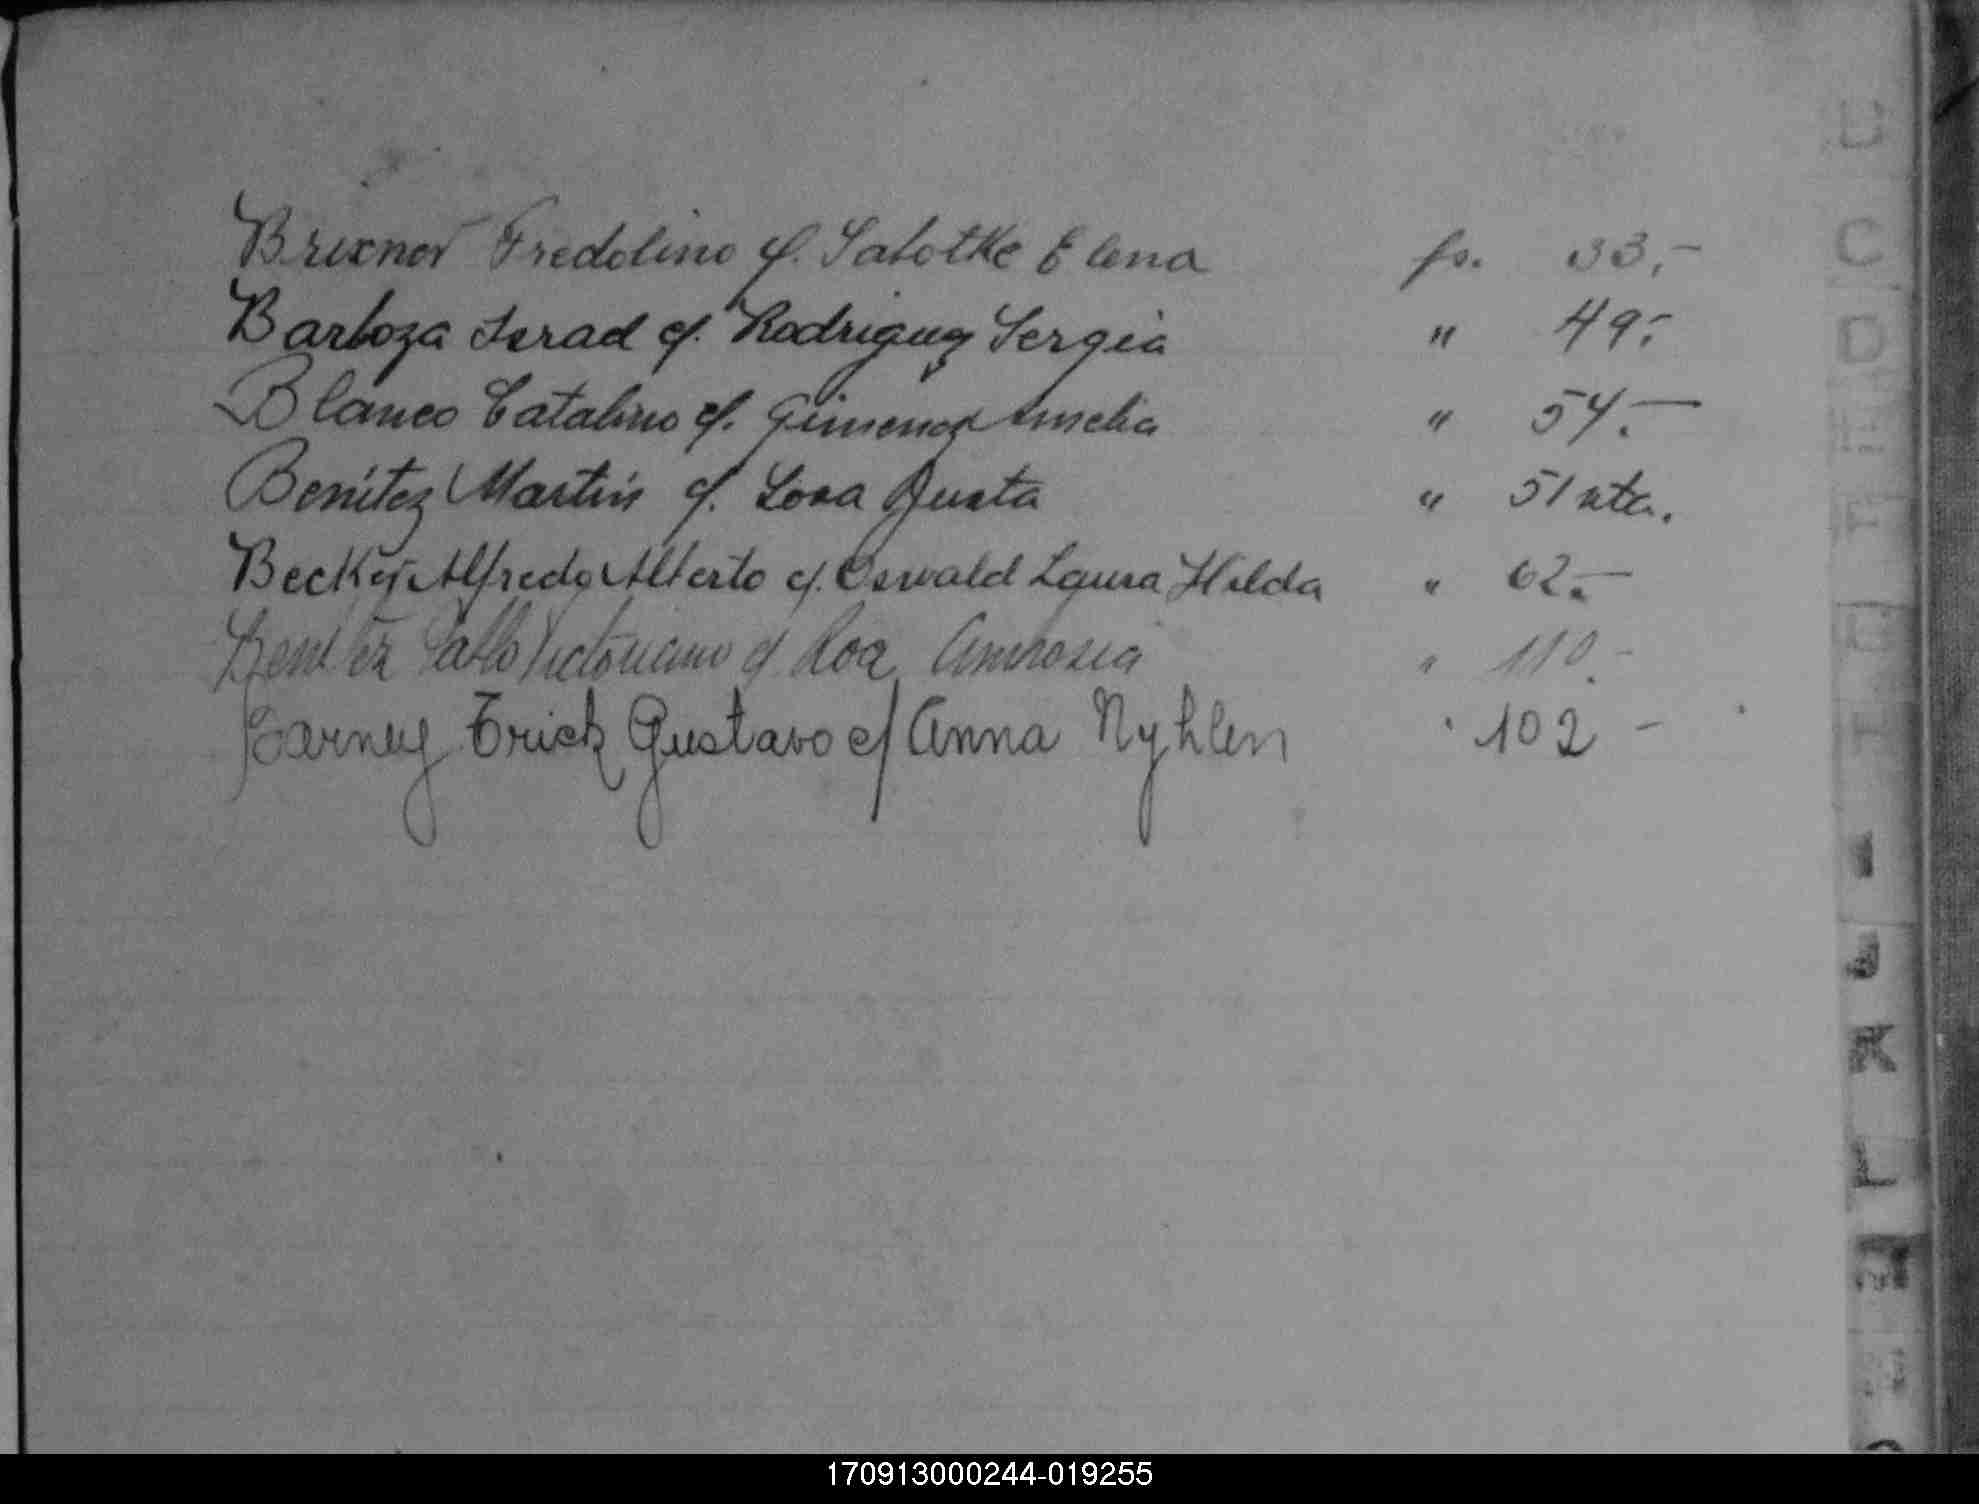 Brixner Fredolino c/. Sabotke Elena fs. 33.-
Barboza Israd c/. Rodriguez Sergia " 49.-
Blanco Catalino c/. Gimenez Amelia " 54.-
Benitez Martin c/. Sosa Justa " 51 vta.
Becker Alfredo Alberto c/. Oswald Laura Hilda " 62.-
Benitez Pablo Victoriano c/ Roa Ambrosia " 110.-
Barney Erick Gustavo c/ Anna Nyhlen " 102 -
C
D
E
F
G
H
I
J
K
L
M
N
170913000244-019255